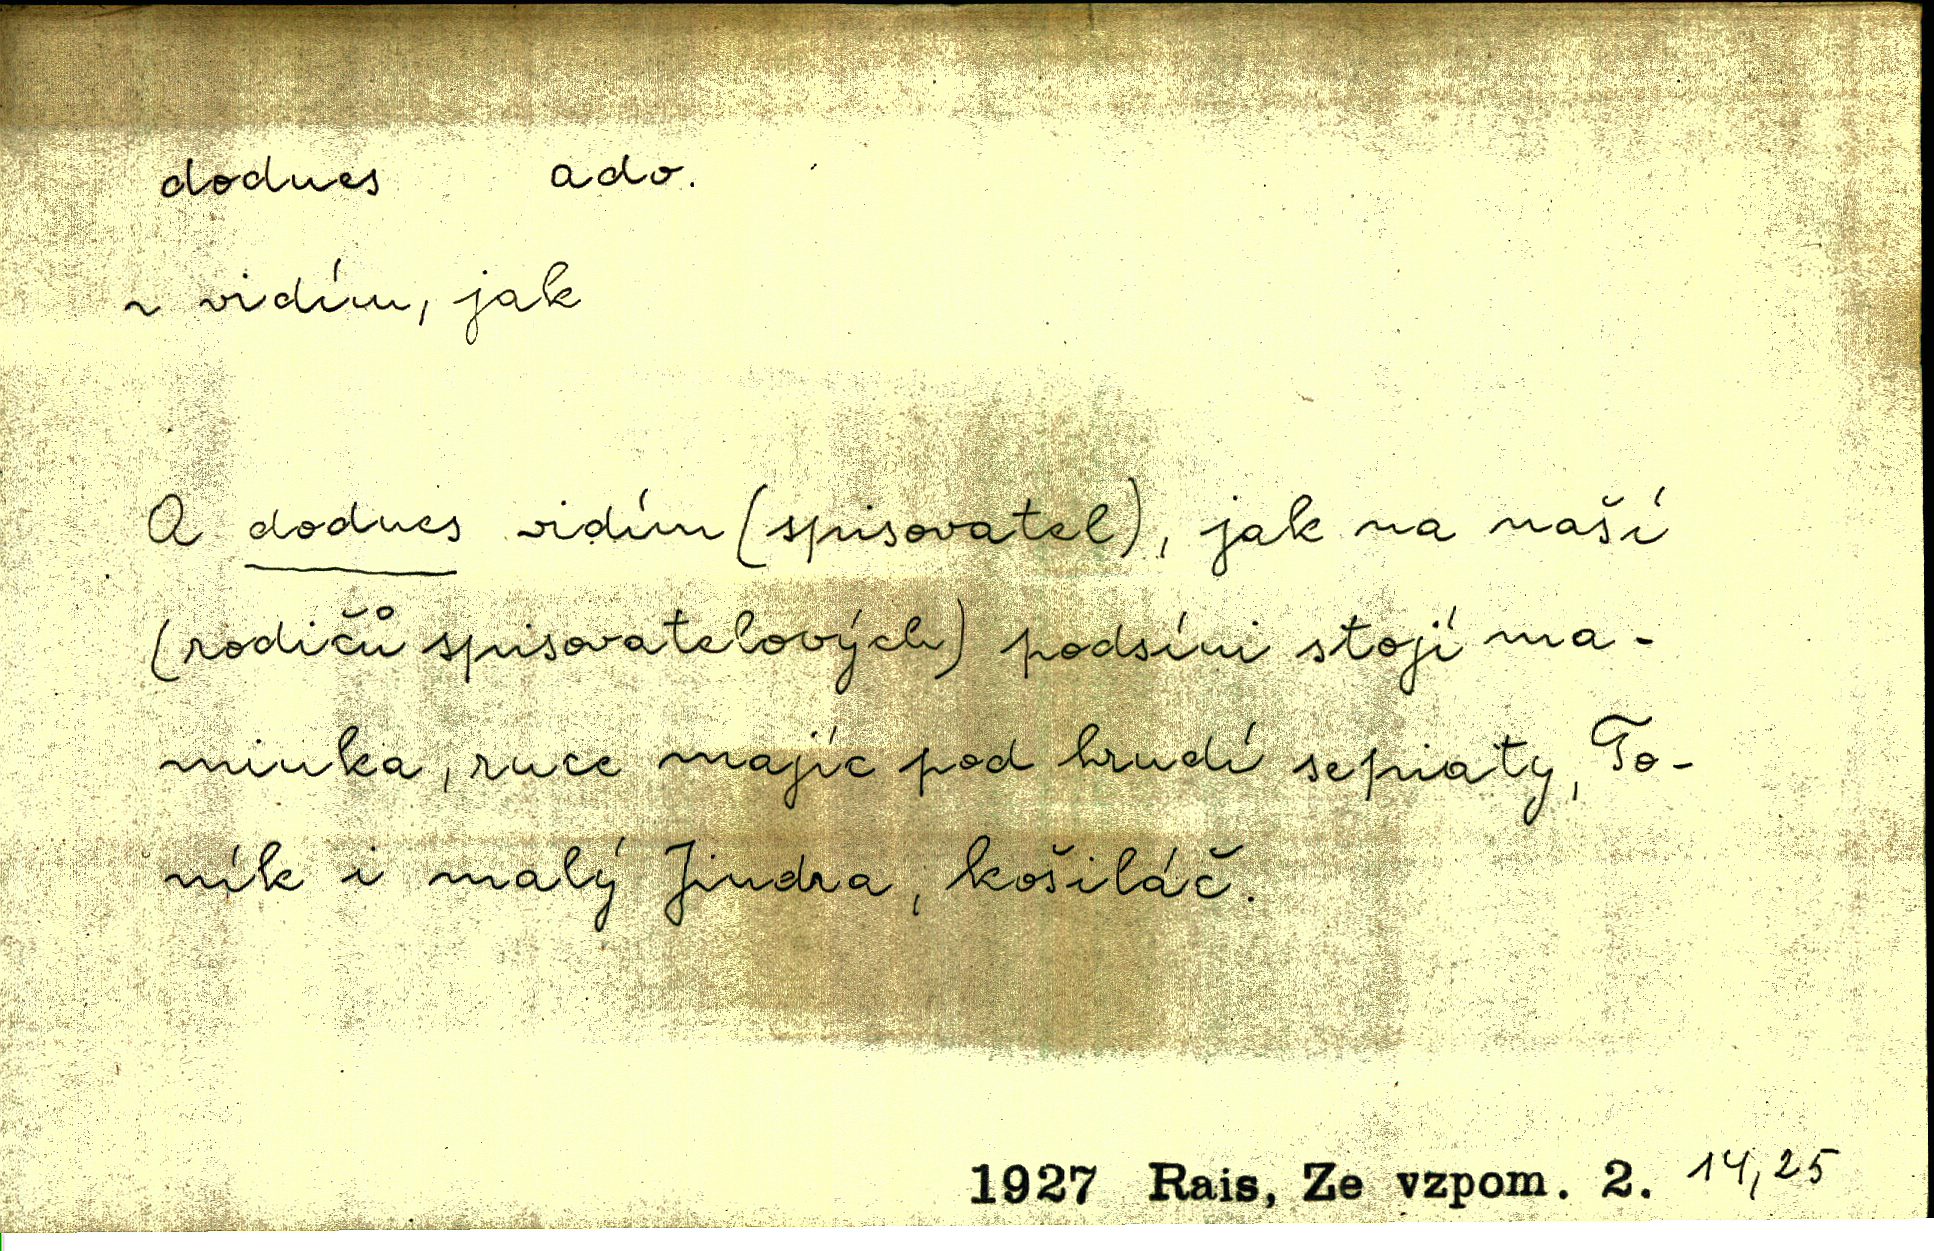 dodnes adv.
~ vidím, jak
A dodnes vidím (spisovatel), jak na naší
(rodičů spisovatelových) podsíni stojí ma-
minka, ruce majíc pod hrudí sepiaty, To-
ník i malý Jindra, košiláč.
1927 Rais, Ze vzpom. 2. 14,25